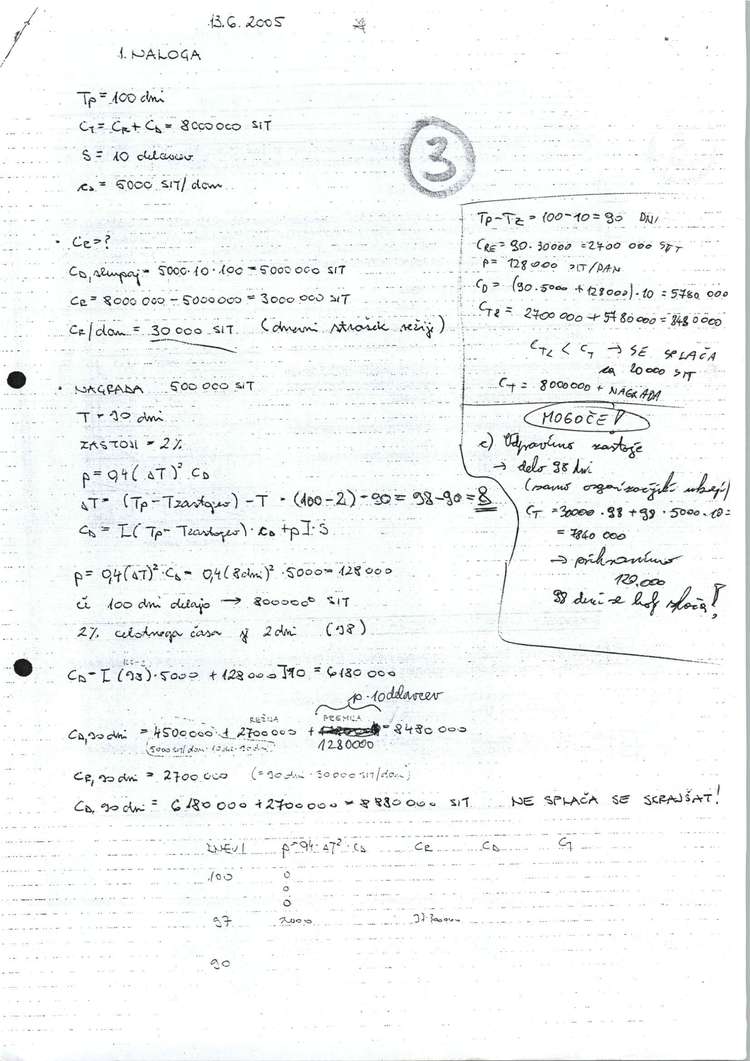 13.6.2005
1. NALOGA
Tp = 100 dni
CT = CR + CD = 8000000 SIT
S = 10 delavcev
cD = 5000 SIT/dan
3
• CR = ?
CD, skupaj = 5000·10·100 = 5000000 SIT
CR = 8000 000 - 5000000 = 3000 000 SIT
CR/dan = 30 000 SIT (dnevni strošek režije)
• NAGRADA 500 000 SIT
T = 90 dni
ZASTOJI = 2%
p = 0,4 (ΔT)² CD
ΔT = (Tp - Tzastojev) - T = (100-2) - 90 = 98-90 = 8
CD = [(Tp - Tzastojev)·cD + p]·S
p = 0,4(ΔT)²·CD = 0,4(8dni)²·5000 = 128000
če 100 dni delajo → 8000000 SIT
2% celotnega časa je 2 dni (98)
CD = [(98)·5000 + 128000]·10 = 6180 000
p·10 delavcev
REŽIJA PREMIJA
CD,90 dni = 4500000 + 2700000 + = 8480 000
(5000 SIT/dan·10 del·90 dni) 1280000
CR,90 dni = 2700 000 (=90 dni · 30000 SIT/dan)
CD, 90 dni = 6180 000 + 2700000 = 8880 000 SIT NE SPLAČA SE SKRAJŠAT!
DNEVI p=0,4·ΔT²·CD CR CD CT
100 0
0
0
97 2000
90
Tp - Tz = 100-10 = 90 DNI
CRE = 90·30000 = 2700 000 SIT
p = 128000 SIT/DAN
CD = (90·5000 + 128000)·10 = 5780 000
CTR = 2700000 + 5780000 = 8480000
CTR < CT → SE SPLAČA
za 20000 SIT
CT = 8000000 + NAGRADA
MOGOČE!
c) Odpravimo zastoje
→ delo 98 dni
(samo organizacijski ukrepi)
CT = 30000·98 + 98·5000·10 =
= 7840 000
→ prihranimo
120.000
98 dni se bolj splača!